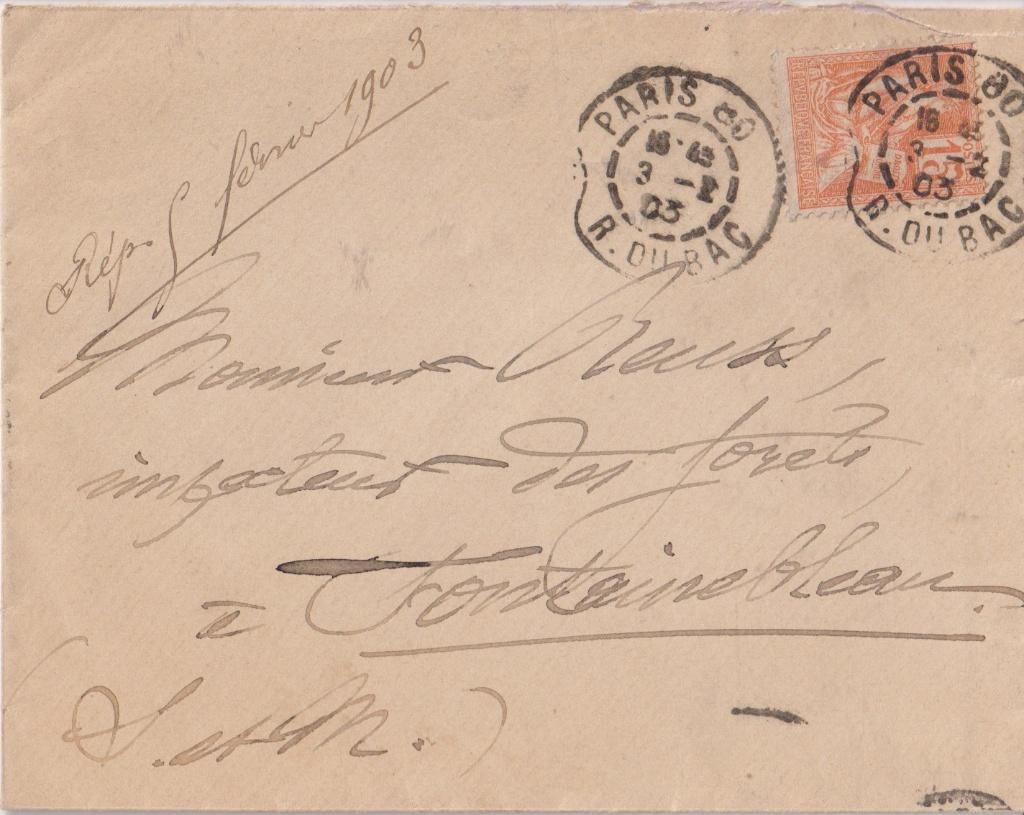 Rép. 5 février 1903
PARIS 80
16 45
3 - 2
03
R. DU BAC
15
POSTES
REPUBLIQUE FRANÇAISE
PARIS 80
16 45
3 - 2
03
R. DU BAC
Monsieur Reuss,
inspecteur des forêts,
à Fontainebleau.
(S. et M.)